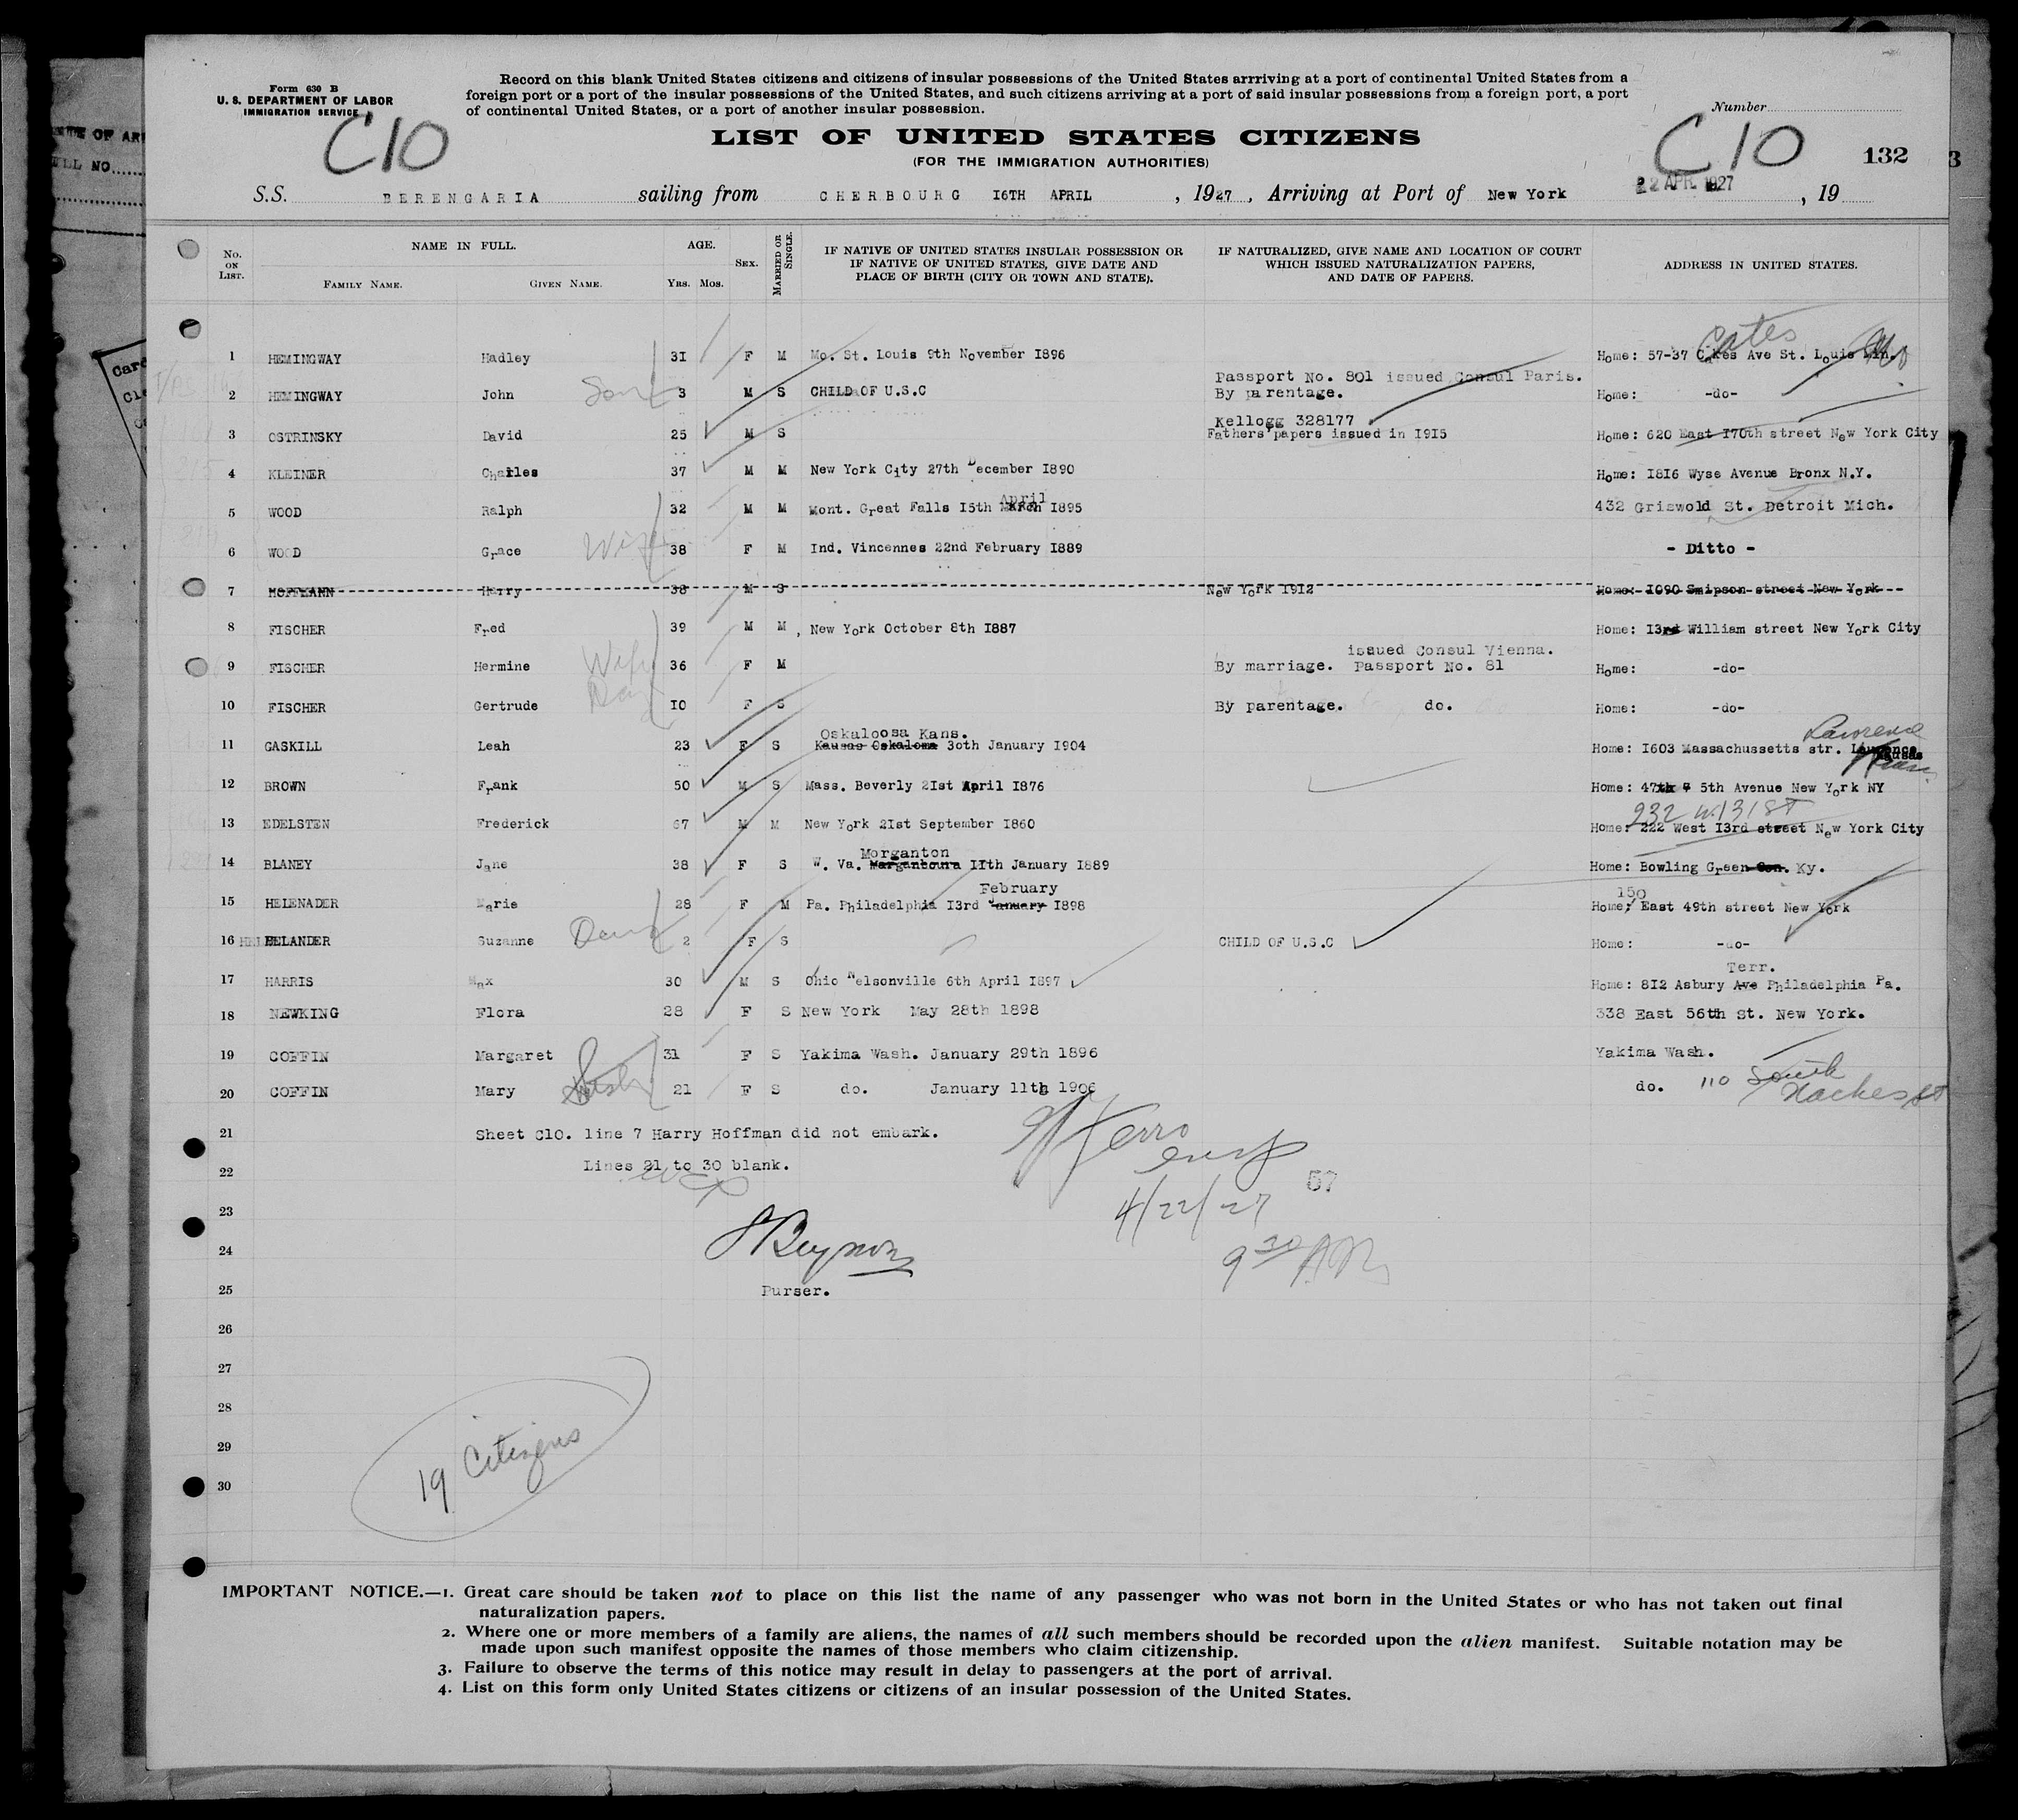 Form 630 B
U. S. DEPARTMENT OF LABOR
IMMIGRATION SERVICE
C10
Record on this blank United States citizens and citizens of insular possessions of the United States arrriving at a port of continental United States from a
foreign port or a port of the insular possessions of the United States, and such citizens arriving at a port of said insular possessions from a foreign port, a port
of continental United States, or a port of another insular possession.
Number
LIST OF UNITED STATES CITIZENS
(FOR THE IMMIGRATION AUTHORITIES)
C10
132
3
S.S. BERENGARIA sailing from CHERBOURG I6TH APRIL, 1927, Arriving at Port of New York 22 APR. 1927, 19
No. ON LIST. NAME IN FULL. FAMILY NAME. GIVEN NAME. AGE. YRS. MOS. SEX. MARRIED OR SINGLE. IF NATIVE OF UNITED STATES INSULAR POSSESSION OR IF NATIVE OF UNITED STATES, GIVE DATE AND PLACE OF BIRTH (CITY OR TOWN AND STATE). IF NATURALIZED, GIVE NAME AND LOCATION OF COURT WHICH ISSUED NATURALIZATION PAPERS, AND DATE OF PAPERS. ADDRESS IN UNITED STATES.
Cates
1 HEMINGWAY Hadley 3I F M Mo. St. Louis 9th November I896 Home: 57-37 Cakes Ave St. Louis Min. Mo
Passport No. 801 issued Consul Paris.
2 HEMINGWAY John Son 3 M S CHILD OF U.S.C By parentage. Home: -do-
Kellogg 328177
3 OSTRINSKY David 25 M S Fathers papers issued in I9I5 Home: 620 East I70th street New York City
4 KLEINER Charles 37 M M New York City 27th December I890 Home: I8I6 Wyse Avenue Bronx N.Y.
April
5 WOOD Ralph 32 M M Mont. Great Falls I5th March I895 432 Griswold St. Detroit Mich.
6 WOOD Grace Wife 38 F M Ind. Vincennes 22nd February I889 - Ditto -
7 HOFFMANN Harry 38 M S New York I9I2 Home: I090 Smipson street New York
8 FISCHER Fred 39 M M, New York October 8th I887 Home: I3rd William street New York City
issued Consul Vienna.
9 FISCHER Hermine Wife 36 F M By marriage. Passport No. 8I Home: -do-
10 FISCHER Gertrude Dau I0 F S By parentage. do. Home: -do-
Oskaloosa Kans. Lawrence
11 GASKILL Leah 23 F S Kausas Oskaloma 30th January I904 Home: I603 Massachussetts str. Lawrence Kansas Kans.
12 BROWN Frank 50 M S Mass. Beverly 2Ist April I876 Home: 47th & 5th Avenue New York NY
232 W 131 ST
13 EDELSTEN Frederick 67 M M New York 2Ist September I860 Home: 222 West I3rd street New York City
Morganton
14 BLANEY Jane 38 F S W. Va. Marganboura IIth January I889 Home: Bowling Green Con. Ky.
February 150
15 HELENADER Marie 28 F M Pa. Philadelphia I3rd January I898 Home: East 49th street New York
16 HELANDER Suzanne Dau 2 F S CHILD OF U.S.C Home: -do-
Terr.
17 HARRIS Max 30 M S Ohio Nelsonville 6th April I897 Home: 8I2 Asbury Ave Philadelphia Pa.
18 NEWKING Flora 28 F S New York May 28th 1898 338 East 56th St. New York.
19 COFFIN Margaret 31 F S Yakima Wash. January 29th 1896 Yakima Wash.
20 COFFIN Mary 21 F S do. January 11th 1906 do. 110 South Naches St
21 Sheet C10. line 7 Harry Hoffman did not embark.
22 Lines 21 to 30 blank.
57
4/22/27
23
24
9 30 AM
25 Purser.
26
27
28
29
30
19 Citizens
IMPORTANT NOTICE.—1. Great care should be taken not to place on this list the name of any passenger who was not born in the United States or who has not taken out final
naturalization papers.
2. Where one or more members of a family are aliens, the names of all such members should be recorded upon the alien manifest. Suitable notation may be
made upon such manifest opposite the names of those members who claim citizenship.
3. Failure to observe the terms of this notice may result in delay to passengers at the port of arrival.
4. List on this form only United States citizens or citizens of an insular possession of the United States.